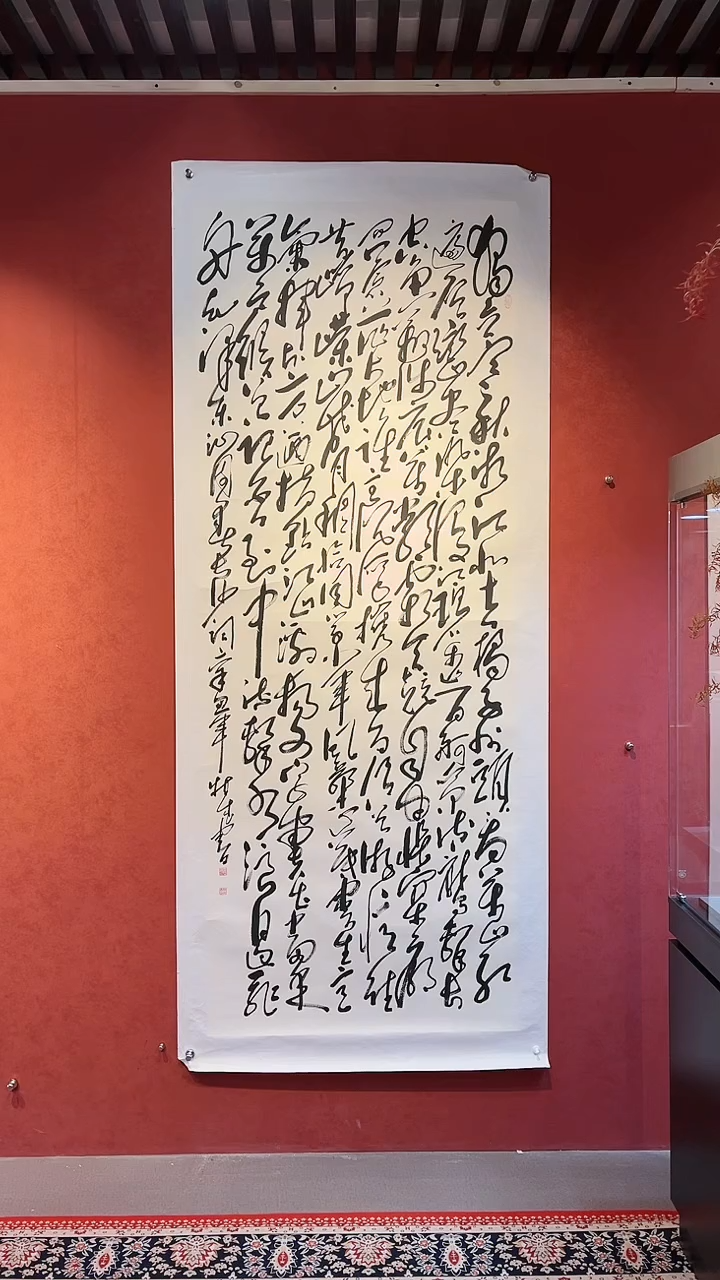 独立寒秋湘江北去橘子洲头看万山红
遍层林尽染漫江碧透百舸争流鹰击长
空鱼翔浅底万类霜天竞自由怅寥廓
问苍茫大地谁主沉浮携来百侣曾游忆往
昔峥嵘岁月稠恰同学少年风华正茂书生意
气挥斥方遒指点江山激扬文字粪土当年
万户侯曾记否到中流击水浪遏飞
舟毛泽东沁园春长沙词辛丑年书